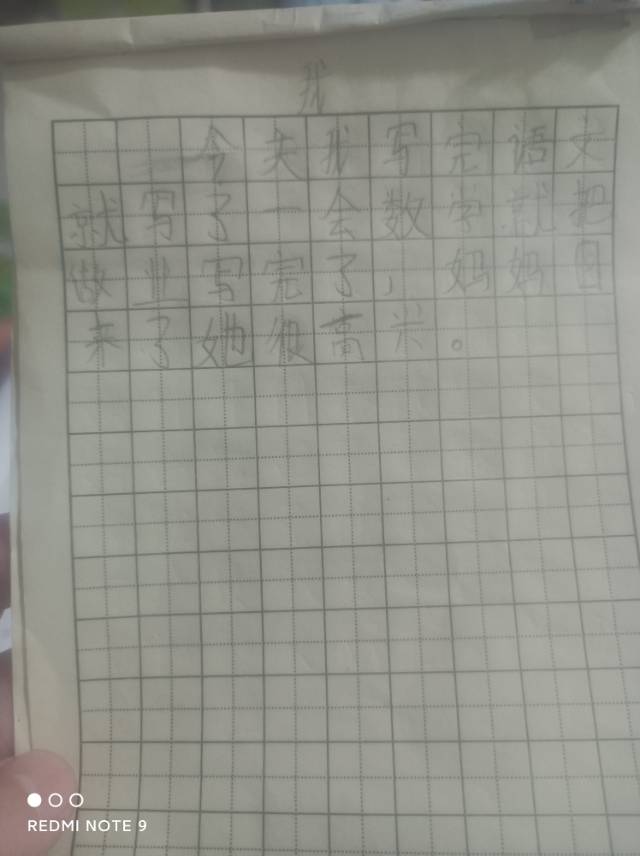 我
今天我写完语文
就写了一会数学就把
做业写完了，妈妈回
来了她很高兴。
REDMI NOTE 9